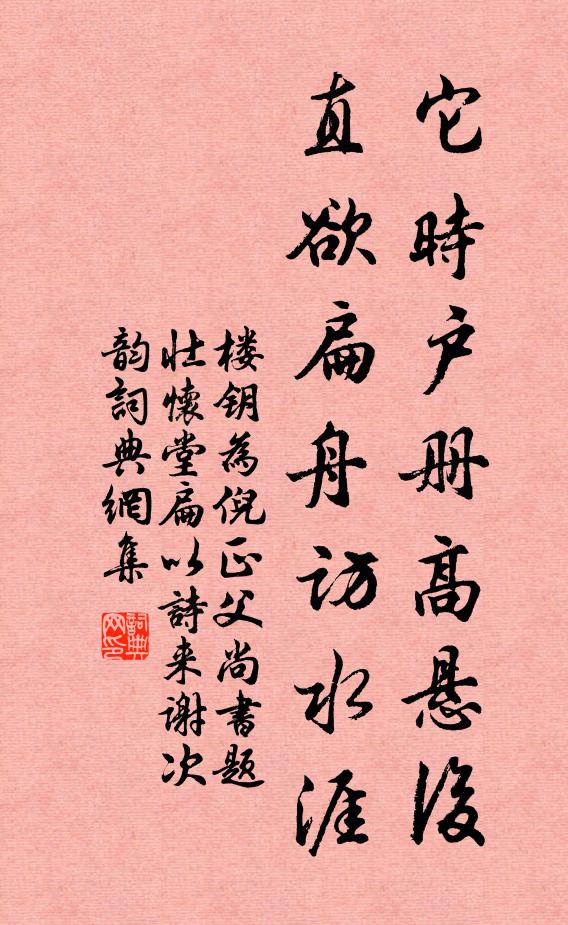 它時户册高悬後
直欲扁舟访水涯
楼钥為倪正父尚書题
壮懷堂扁以詩来谢次
韵詞典網集
詞典
网印